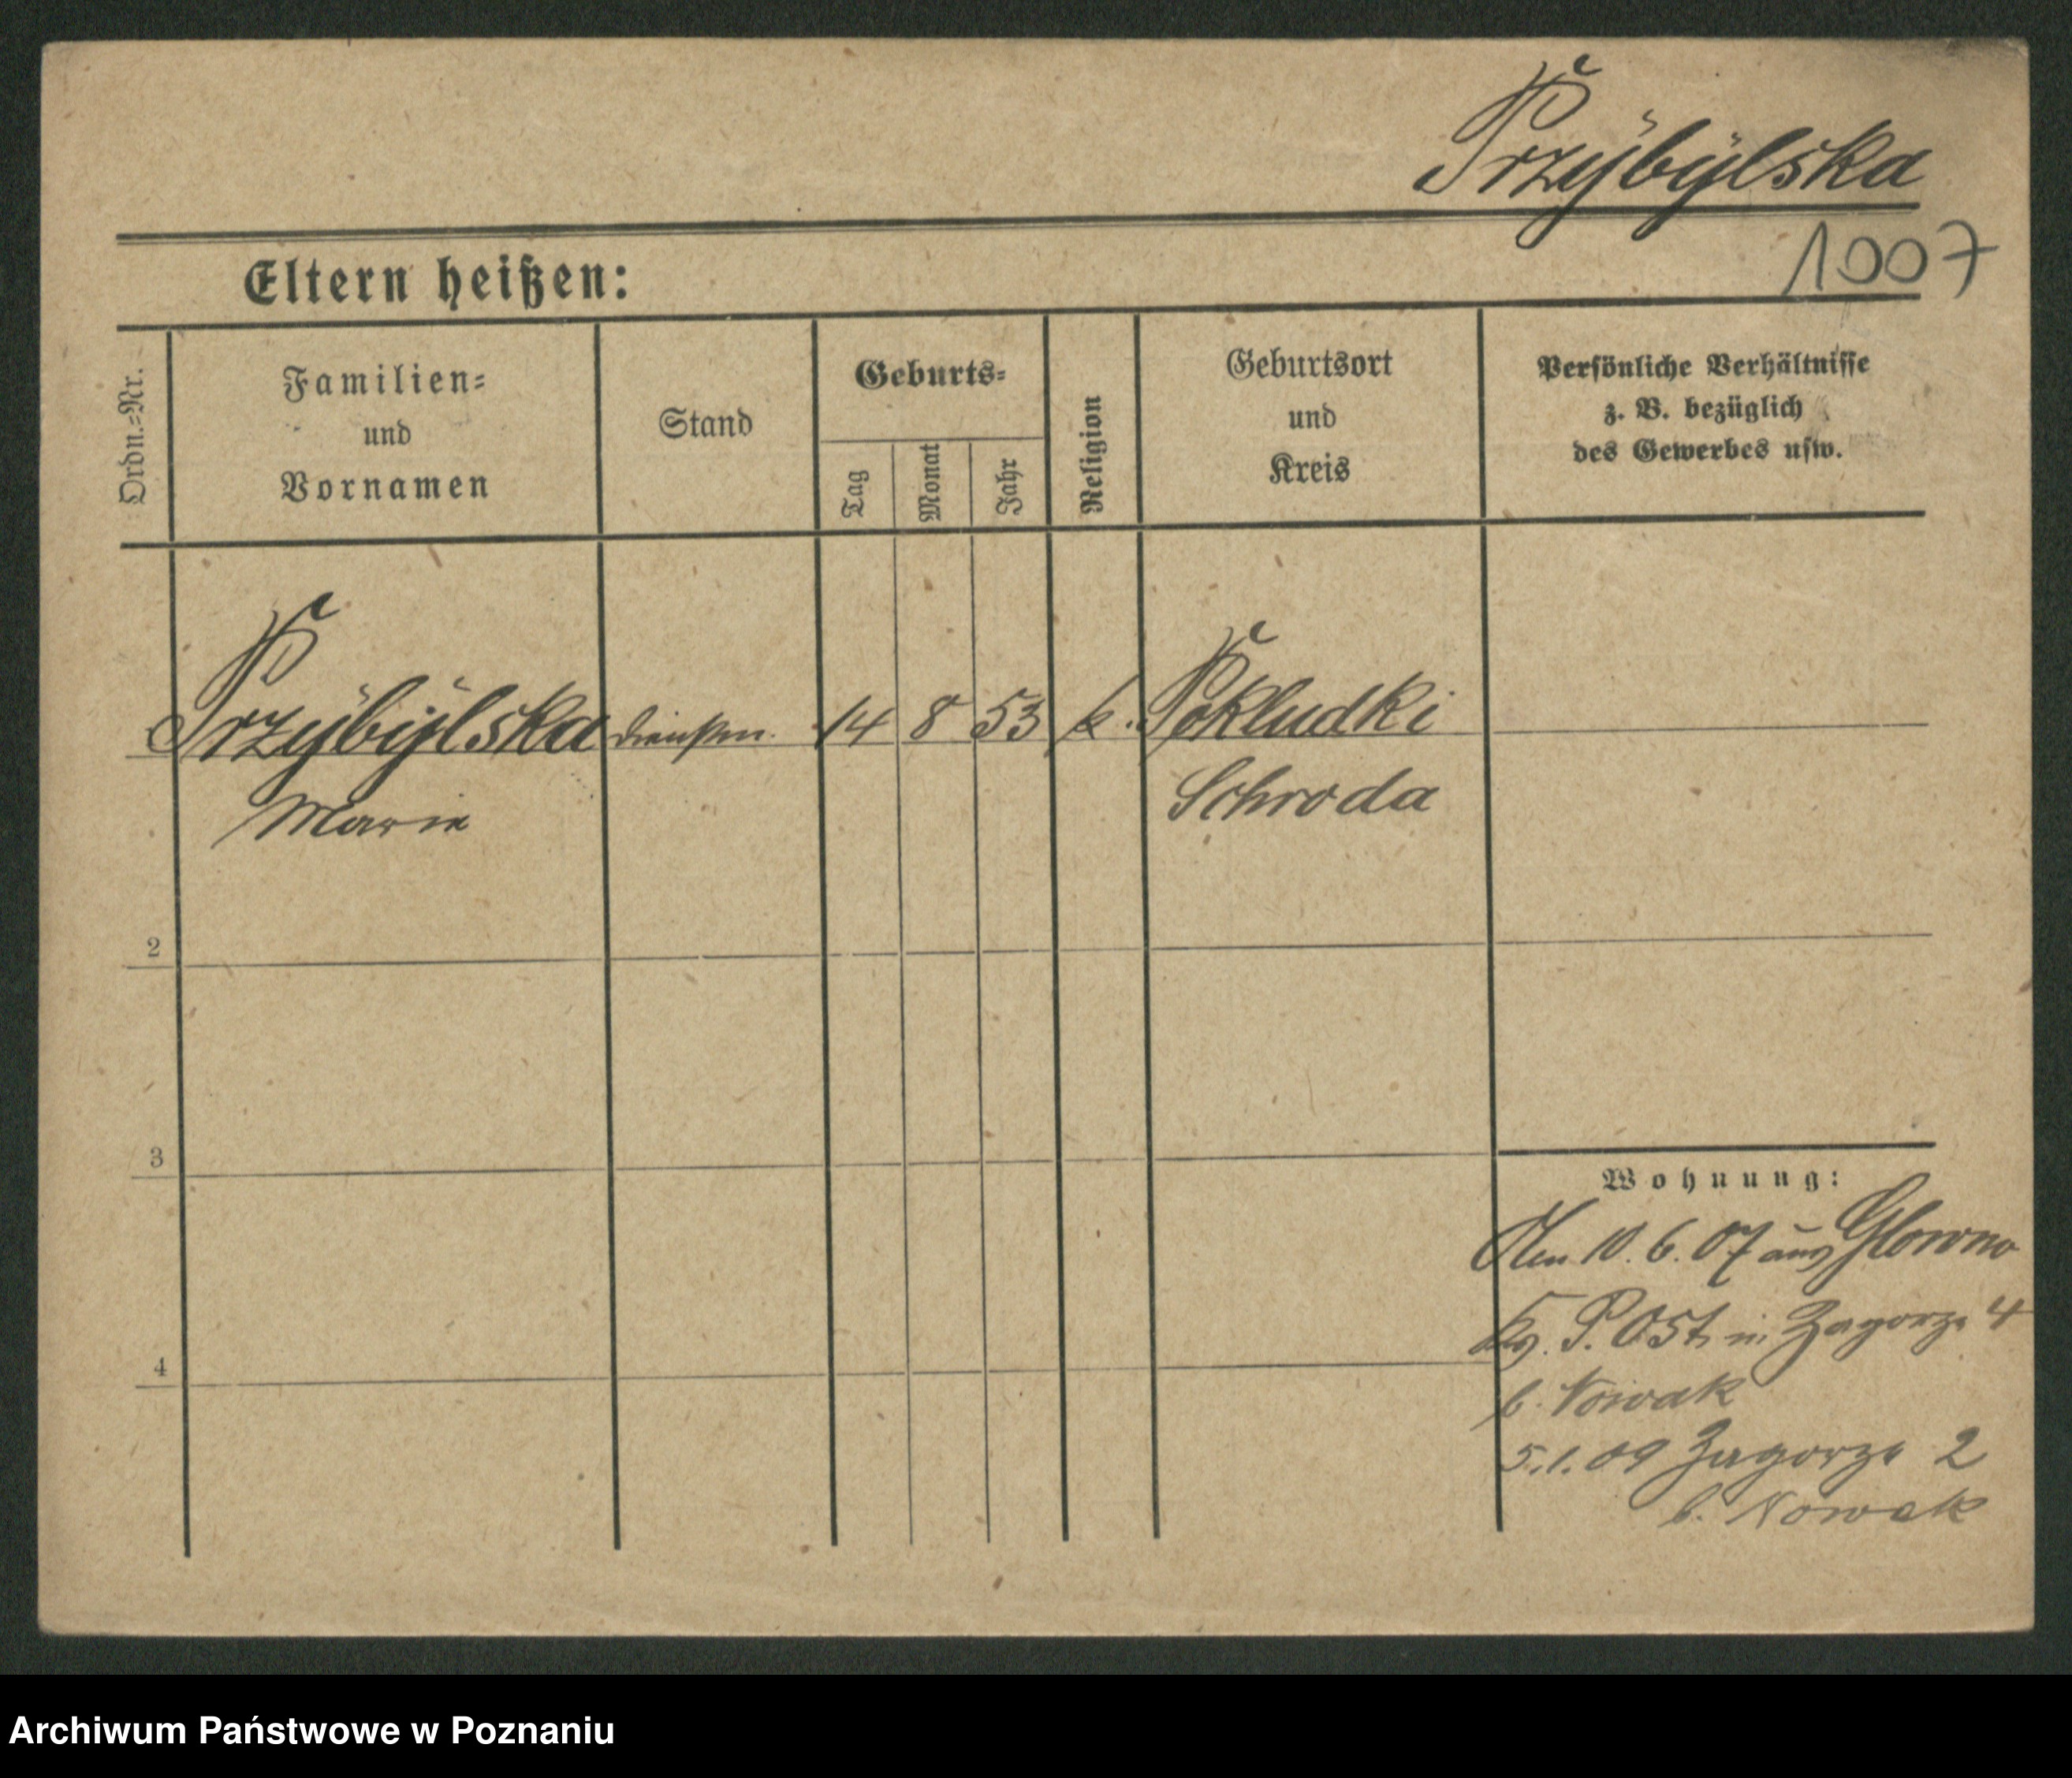 Przÿbÿlska
1007
Eltern heißen:
Ordn.=Nr.
Familien=
und
Vornamen
Stand
Geburts=
Tag
Monat
Jahr
Religion
Geburtsort
und
Kreis
Persönliche Verhältnisse
z. B. bezüglich
des Gewerbes usw.
Przÿbÿlska 14 8 53 k. Pokludki
Marie Schroda
2
3
4
Wohnung:
10. 6. 07 aus Glowno
P. Ost in Zagorze 4
b. Nowak
5.1.09 Zagorze 2
b. Nowak
Archiwum Państwowe w Poznaniu